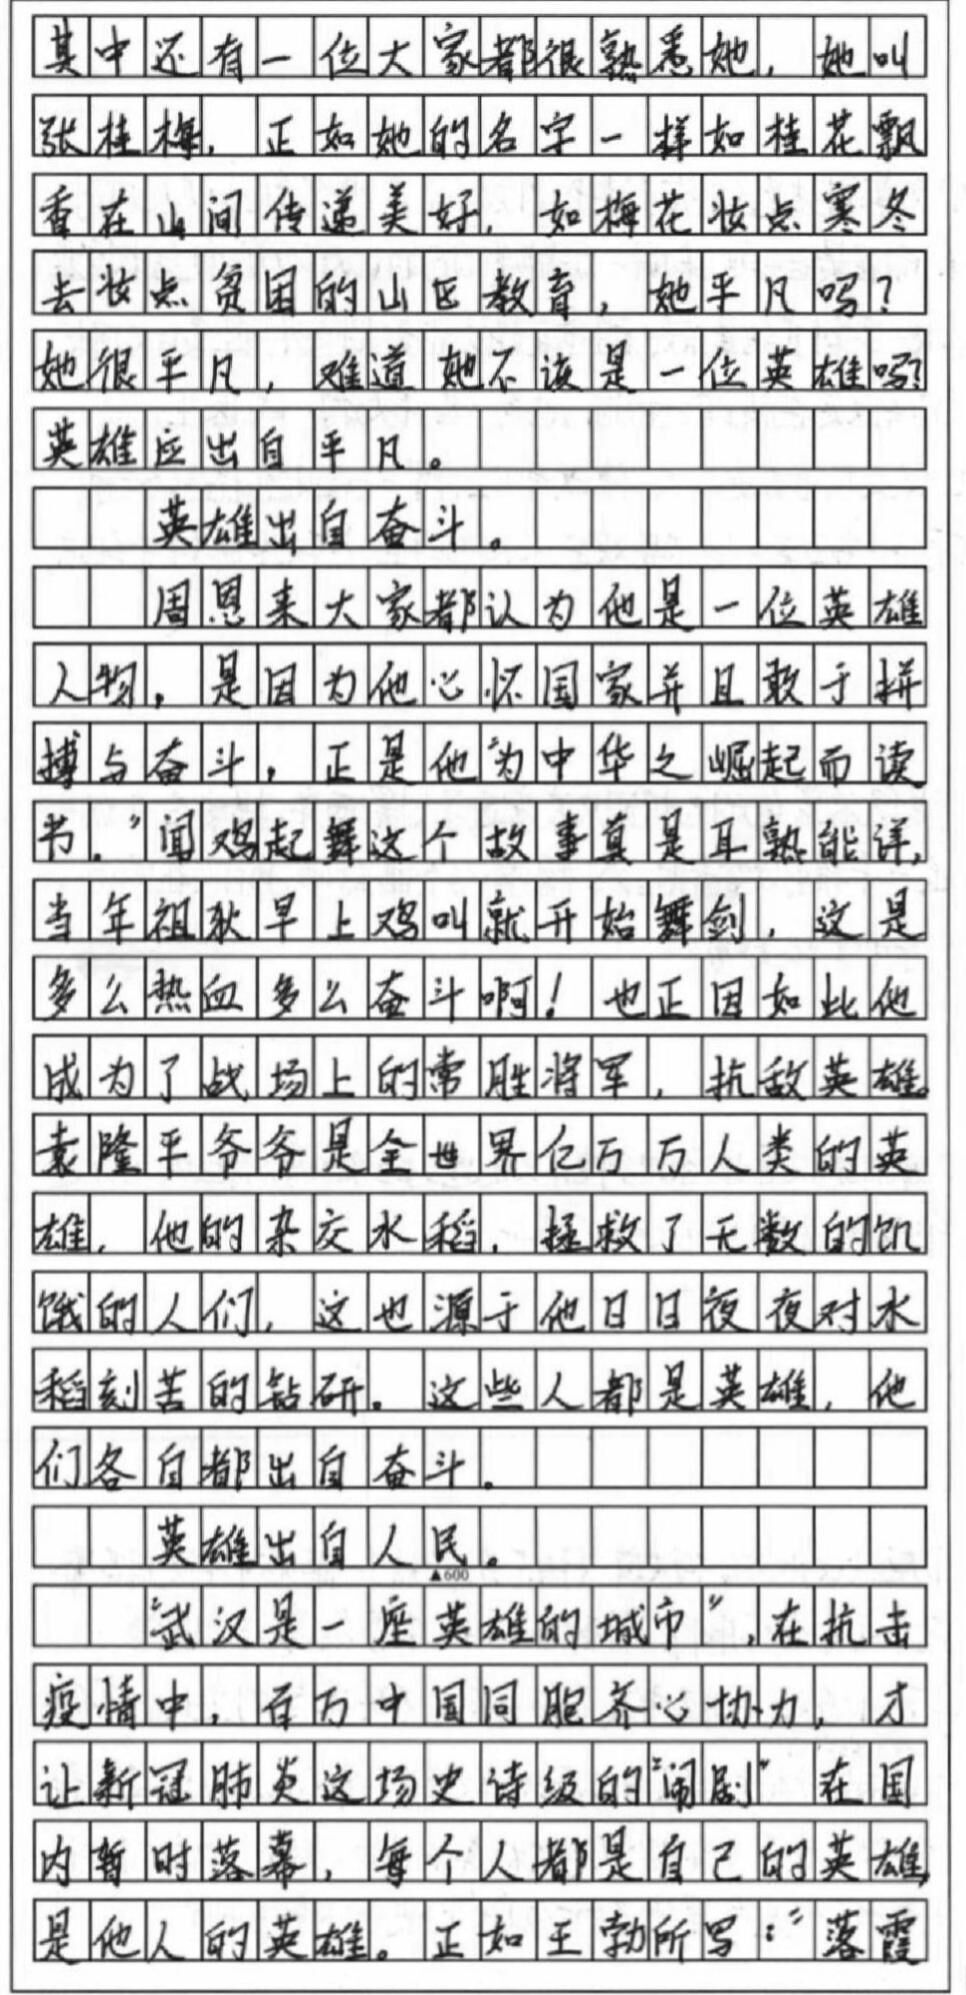 其中还有一位大家都很熟悉她，她叫
张桂梅，正如她的名字一样如桂花飘
香在山间传递美好，如梅花妆点寒冬
去妆点贫困的山区教育，她平凡吗？
她很平凡，难道她不该是一位英雄吗？
英雄应出自平凡。
英雄出自奋斗。
周恩来大家都认为他是一位英雄
人物，是因为他心怀国家并且敢于拼
搏与奋斗，正是他“为中华之崛起而读
书。”闻鸡起舞这个故事真是耳熟能详，
当年祖狄早上鸡叫就开始舞剑，这是
多么热血多么奋斗啊！也正因如此他
成为了战场上的常胜将军，抗敌英雄。
袁隆平爷爷是全世界亿万万人类的英
雄，他的杂交水稻，拯救了无数的饥
饿的人们，这也源于他日日夜夜对水
稻刻苦的钻研。这些人都是英雄，他
们各自都出自奋斗。
英雄出自人民。
▲600
“武汉是一座英雄的城市”，在抗击
疫情中，百万中国同胞齐心协力，才
让新冠肺炎这场史诗级的“闹剧”在国
内暂时落幕，每个人都是自己的英雄，
是他人的英雄。正如王勃所写：“落霞